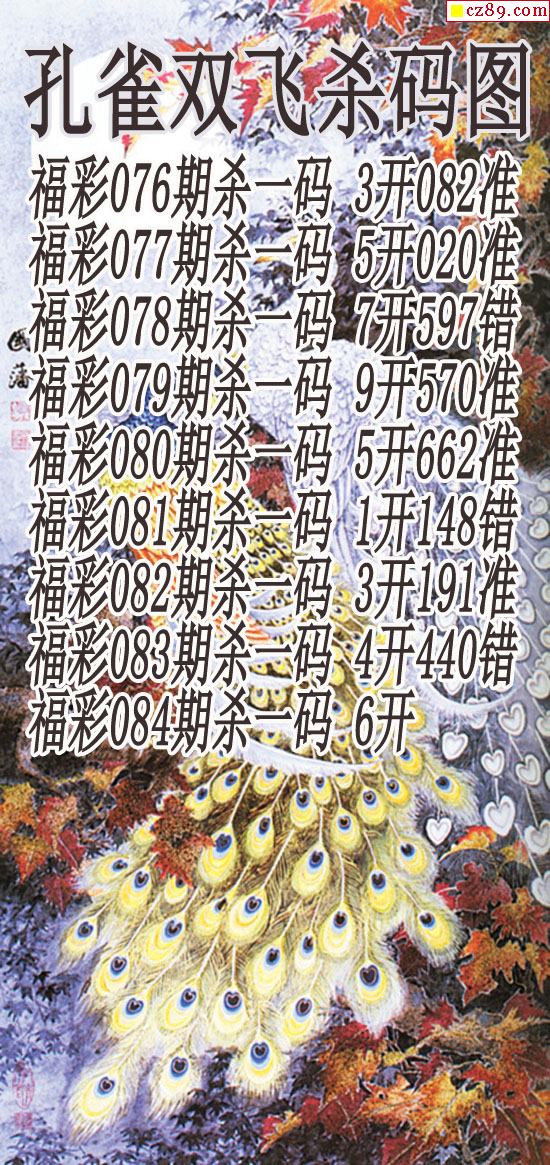 cz89.com
孔雀双飞杀码图
福彩076期杀一码 3开082准
福彩077期杀一码 5开020准
福彩078期杀一码 7开597错
福彩079期杀一码 9开570准
福彩080期杀一码 5开662准
福彩081期杀一码 1开148错
福彩082期杀一码 3开191准
福彩083期杀一码 4开440错
福彩084期杀一码 6开